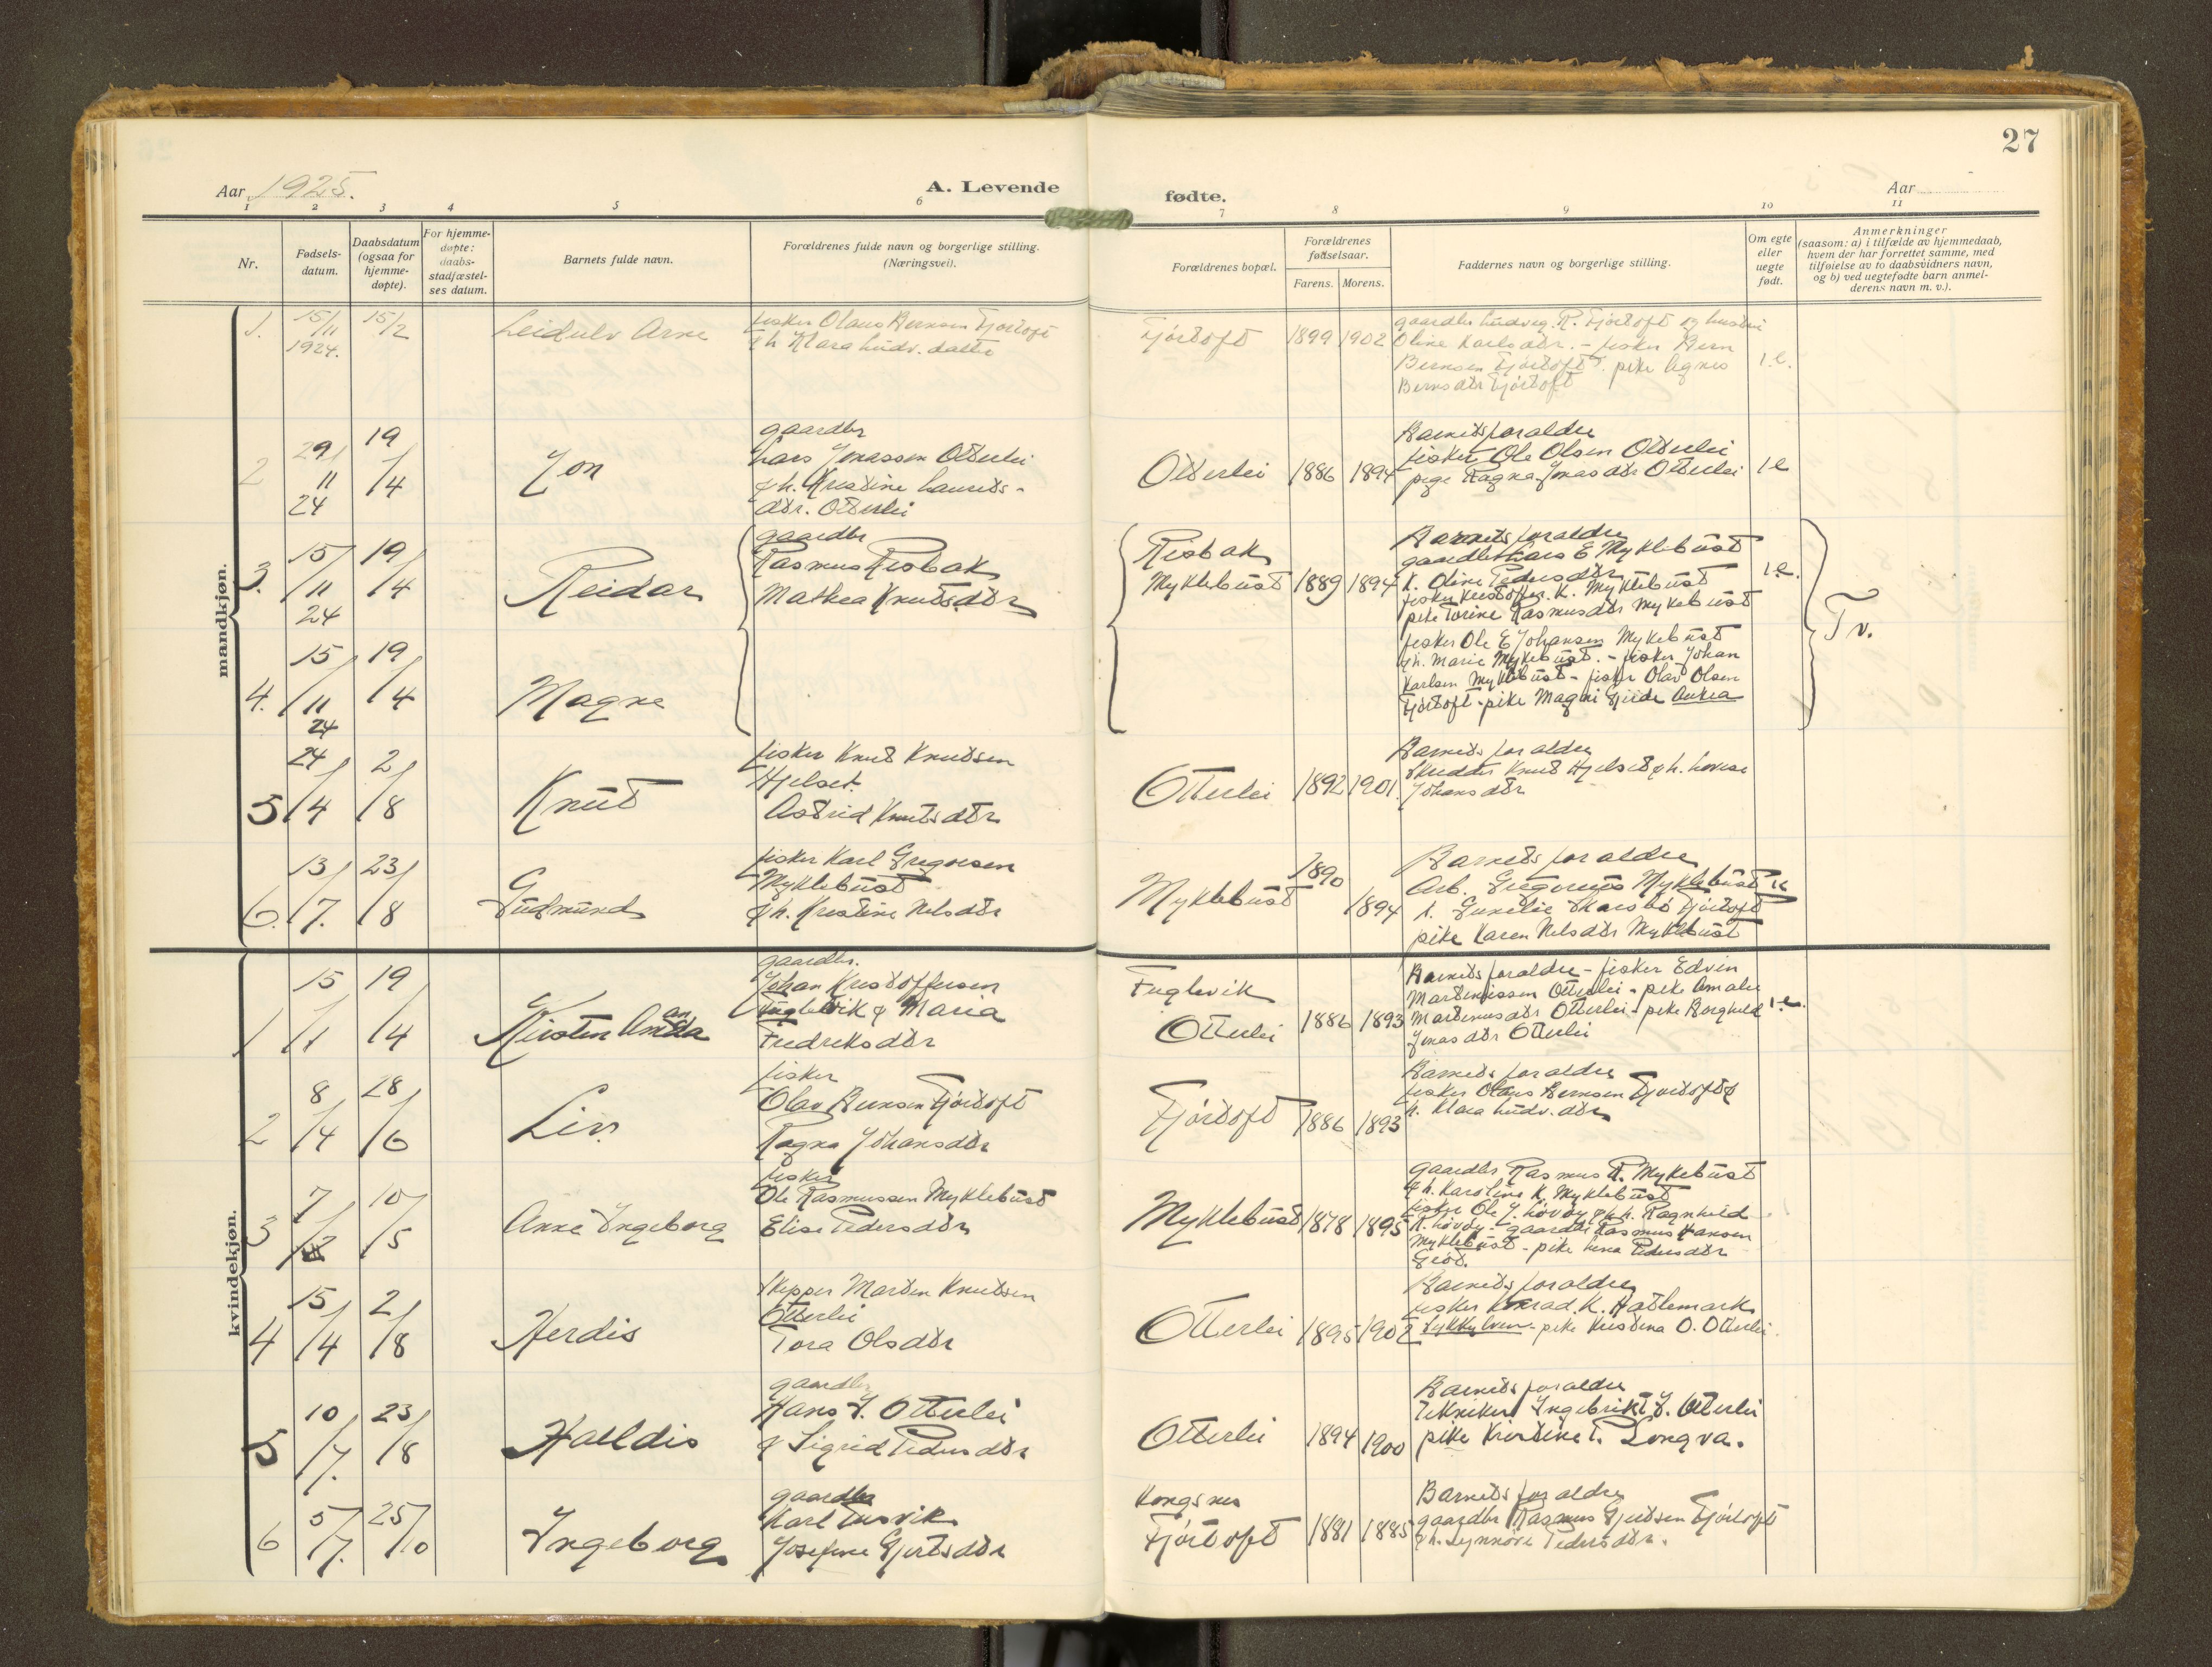 27
Aar 1925.
A. Levende
fødte.
Aar
1 2 3 4 5 6 7 8 9 10 11
Nr.
Fødsels-
datum.
Daabsdatum
(ogsaa for
hjemme-
døpte).
For hjemme-
døpte:
daabs-
stadfæstel-
ses datum.
Barnets fulde navn.
Forældrenes fulde navn og borgerlige stilling.
(Næringsvei).
Forældrenes bopæl.
Forældrenes
fødselsaar.
Farens. Morens.
Faddernes navn og borgerlige stilling.
Om egte
eller
uegte
født.
Anmerkninger
(saasom: a) i tilfælde av hjemmedaab,
hvem der har forrettet samme, med
tilføielse av to daabsvidners navn,
og b) ved uegtefødte barn anmel-
derens navn m. v.).
mandkjøn.
1. 15/11 1924. 15/2
Leidulv Arne
fisker Olaus Bernsen Fjørtoft
& h Klara Ludv. datter
Fjørtoft 1899 1902
gaardbr Ludvig R. Fjørtoft og hustru
Oline Karlsdtr. - fisker Bern
Bernsen Fjørtoft. pike Agnes
Bernsdtr Fjørtoft
1.e.
2 29/11 24 19/4
Jon
gaardbr
Lars Jonassen Otterlei
& h. Kristine Laurits-
dtr. Otterlei
Otterlei 1886 1894
Barnets foraldre
fisker Ole Olsen Otterlei
pige Ragna Jonasdtr Otterlei
1e
3. 15/11 24 19/4
Reidar
gaardbr
Rasmus Risbak
Mathea Knutsdtr
Risbak
Myklebust 1889 1894
Barnets foraldre
gaardbr Lars E Myklebust
K. Oline Pedersdtr
fisker Kristoffer. K. Myklebust
pike Torine Rasmusdtr Myklebust
1.e.
Tv.
4. 15/11 24 19/4
Magne
fisker Ole E Johansen Myklebust
& h. Marie Myklebust. - fisker Johan
Karlsen Myklebust - fisker Olav Olsen
Fjørtoft - pike Magni Gjerde Aukra
5 24/4 2/8
Knut
fisker Knut Knutsen
Hjelset.
Astrid Knutsdtr
Otterlei 1892 1901.
Barnets foraldre
Skredder Knut Hjelset & h. Lovise
Johansdtr
6. 13/7. 23/8
Gudmund
fisker Karl Gregorsen
Myklebust
& h. Kristine Nilsdtr
Myklebust 1890 1894
Barnets foraldre
Arb. Gregorius Myklebust
pike Karen Nilsdtr Myklebust
kvindekjøn.
1 15/1 19/4
Kirsten Amanda
gaardbr.
Johan Kristoffersen
Fuglevik & Maria
Fredriksdtr
Fuglevik
Otterlei 1886 1893
Barnets foraldre - fisker Edvin
Martinussen Otterlei - pike Amalie
Martinusdtr Otterlei - pike Borghild
Jonasdtr Otterlei
1.e.
2 8/4 28/6
Liv.
fisker
Olav Bernsen Fjørtoft
Ragna Johansdtr
Fjørtoft 1886 1893
Barnets foraldre
fisker Olaus Bernsen Fjørtoft &
h. Klara Ludv. dtr
3 7/2 10/5
Anne Ingeborg
fisker
Ole Rasmussen Myklebust
Elise Pedersdtr
Myklebust 1878 1895
gaardbr Rasmus R. Myklebust
& h. Karoline K. Myklebust
fisker Ole J. Løvøy & h. Ragnhild
R. Løvøy - gaardbr Rasmus Hansen
Myklebust - pike Lena Pedersdtr
4 15/4 2/8
Herdis
Skipper Marten Knutsen
Otterlei
Tora Olsdtr
Otterlei 1895 1902
Barnets foraldre
fisker Konrad. K. Hatlemark
Sykkylven - pike Kristina O. Otterlei.
5 10/7. 23/8
Halldis
gaardbr
Hans J. Otterlei
& Sigrid Pedersdtr
Otterlei 1894 1900
Barnets foraldre
Tekniker Ingebrikt J. Otterlei
pike Kristine P. Longva.
6 5/7. 25/10
Ingeborg
gaardbr
Karl Tusvik
Josefine Gjertsdtr
Kongsnes
Fjørtoft 1881 1885
Barnets foraldre
gaardbr Rasmus Gjertsen Fjørtoft
& h. Synnøve Pedersdtr.